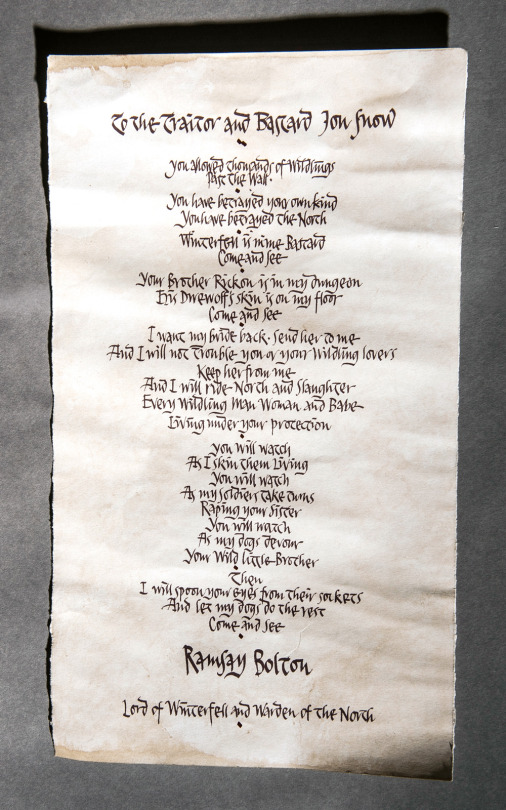 To the Traitor and Bastard Jon Snow
You allowed thousands of Wildlings
Past the Wall.
You have betrayed your own kind
You have betrayed the North
Winterfell is mine Bastard
Come and see
Your Brother Rickon is in my dungeon
His Direwolf's skin is on my floor
Come and see
I want my bride back. Send her to me
And I will not trouble you or your Wildling lovers
Keep her from me
And I will ride North and Slaughter
Every Wildling Man Woman and Babe
Living under your protection
You will watch
As I skin them Living
You will watch
As my soldiers take turns
Raping your Sister
You will watch
As my dogs devour
Your Wild little Brother
Then
I will spoon your eyes from their sockets
And let my dogs do the rest
Come and see
Ramsay Bolton
Lord of Winterfell and Warden of the North